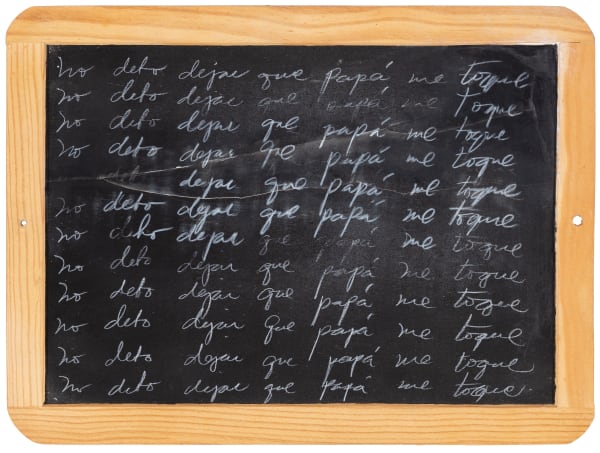 no debo dejar que papá me toque
no debo dejar que papá me toque
no debo dejar que papá me toque
no debo dejar que papá me toque
dejar que papá me toque
no debo dejar que papá me toque
no debo dejar que papá me toque
no debo dejar que papá me toque
no debo dejar que papá me toque
no debo dejar que papá me toque
no debo dejar que papá me toque
no debo dejar que papá me toque